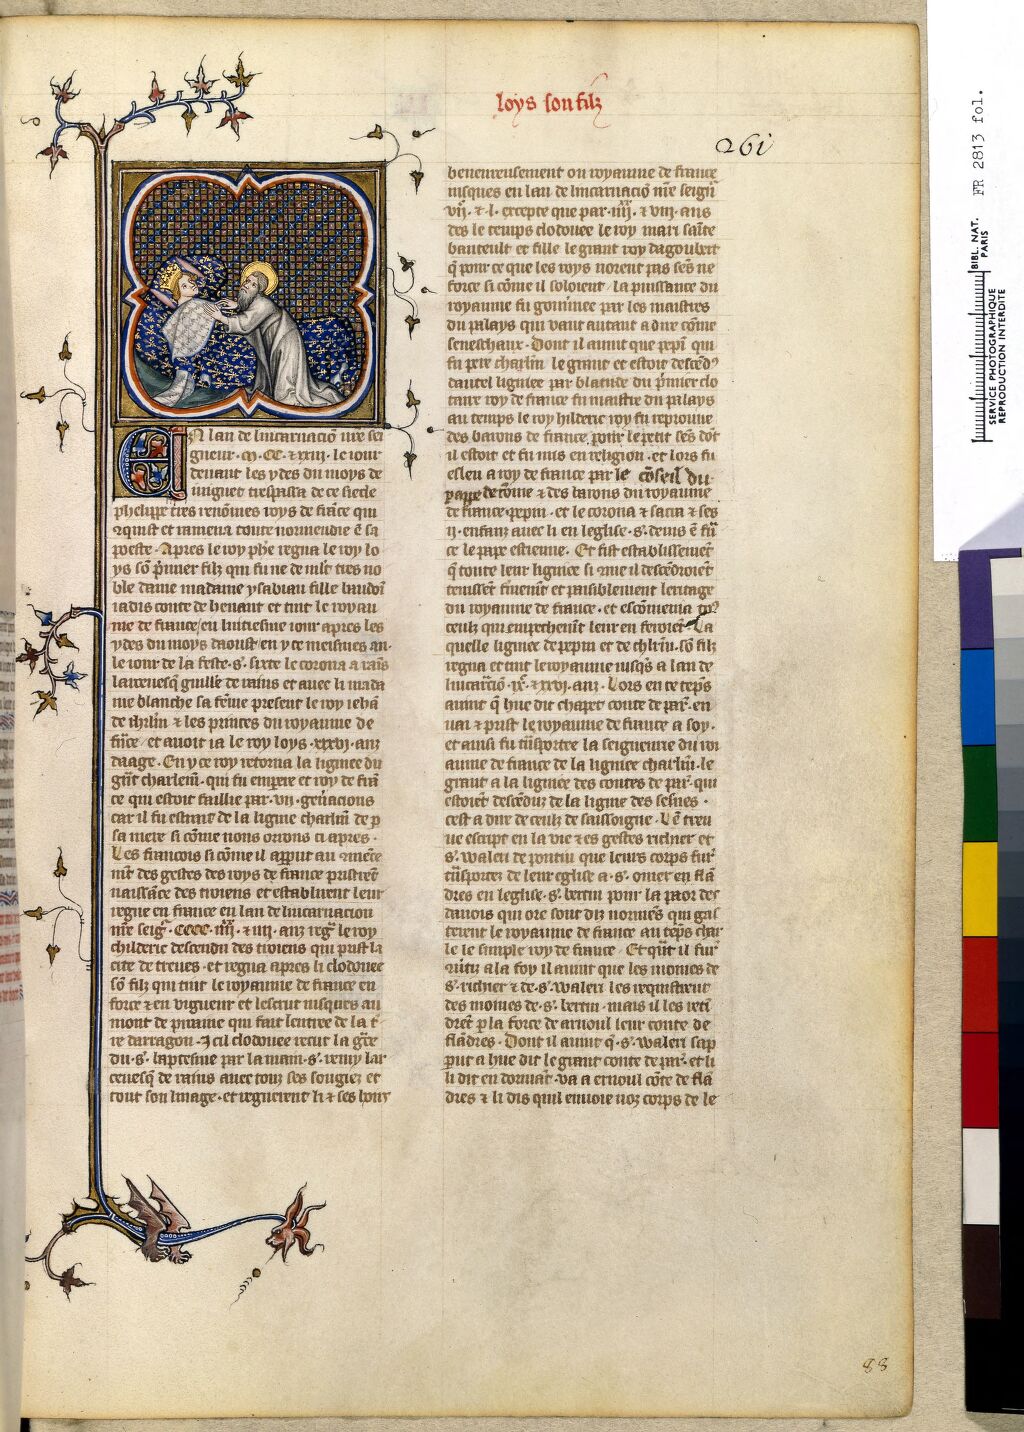 loys son filz
261
En lan de lincarnacio nre sei
gneur .m. CC. & xxiii. le iour
deuant les ydes du moys de
iuignet trespassa de ce siecle
phelippe tres renomes roys de france qui
9quist et ramena toute normendie e sa
poeste. Apres le roy phe regna le roy lo
ys so pmier filz qui fu ne de mlt tres no
ble dame madame ysabiau fille baudoi
iadis conte de henaut et tint le royau
me de france, en luitiesme iour apres les
ydes du moys daoust, en yce meismes an.
le iour de la feste .s. sixte le corona a rais
larceuesq guille de rains et auec li mada
me blanche sa feme present le roy ieha
de ihrlm & les princes du royaume de
frace, et auoit ia le roy loys .xxxvj. anz
daage. En yce roy retorna la lignee du
grat charlem. qui fu empere et roy de fra
ce qui estoit faillie par .vij. generacions
car il fu estrait de la ligne charlm de p
sa mere si come nous orrons ci apres.
Les francois si come il apput au 9mece
mt des gestes des roys de france pristret
naissace des troiens et establirent leur
regne en france en lan de lincarnacion
nre seigr. CCCC. iiii. & iiij. anz regr le roy
childeric descendu des troiens qui prist la
cite de treues. et regna apres li clodouee
so filz qui tint le royaume de france en
force & en vigueur et lescrut iusques au
mont de pirame qui fait lentree de la t
re darragon. Icil clodouee recut la gre
du .s. baptesme par la main .s. remy lar
ceuesq de rains auec touz ses sougiez et
tout son linage. et regnerent li & ses hoirs
beneureusement ou royaume de france
iusques en lan de lincarnacio nre seigr
vij. & l. excepte que par .iiii. & viij. ans
des le temps clodouee le roy mari sate
bauteult et fille le grant roy dagoubert
q pour ce que les roys norent pas ses ne
force si come il soloient. la puissance du
royaume fu gouunee par les maistres
du palays qui vaut autant a dire come
seneschaux. Dont il auint que pepi qui
fu pere charlm le grant et estoit desced9
dautel lignee par blatude du pmier clo
taire roy de france fu maistre du palays
au temps le roy hilderic roy fu reprouue
des barons de france, pour le petit ses dot
il estoit et fu mis en religion. et lors fu
esleu a roy de france par le coseil du
pappe de rome & des barons du royaume
de france. pepin. et le corona & sacra & ses
ij. enfanz auec li en leglise .s. denis e fra
ce le pape estienne. Et fist establissemet
q toute leur lignee si mie il descedroiet
tenisset fmemt et paisiblement leritage
du royaume de france. et escomenia toz
ceulz qui empechemt leur en feroiet. La
quelle lignee de pepin et de chlrm. so filz
regna et tint le royaume iusqs a lan de
lincarcio .ix. & xxvj. anz. Lors en ce teps
auint q hue dit chapet conte de par. en
uai & prist le royaume de france a soy.
et ainsi fu trasportee la seigneurie du roi
aume de france de la lignee charlm. le
grant a la lignee des contes de par. qui
estoiet desceduz de la ligne des sesnes.
cest a dire de ceulz de saissoigne. Len treu
ue escript en la vie & es gestes richier et
s. waleri de pontiu que leurs corps fur
trasportez de leur eglise a .s. omer en fla
dres en leglise .s. bertin pour la paor des
danois qui ore sont diz normes qui gas
terent le royaume de france au teps char
le le simple roy de france. Et qut il fur
9uitiz a la foy il auint que les moines de
s. richier & de .s. waleri les requistrent
des moines de .s. bertin. mais il les reti
dret p la force de arnoul leur conte de
fladres. Dont il auint q .s. waleri sap
put a hue dit le grant conte de par. et li
li dit en dormat. va a ernoul cote de fla
dres & li dis quil enuoie noz corps de le
88
FR 2813 fol.
BIBL. NAT.
PARIS
SERVICE PHOTOGRAPHIQUE
REPRODUCTION INTERDITE